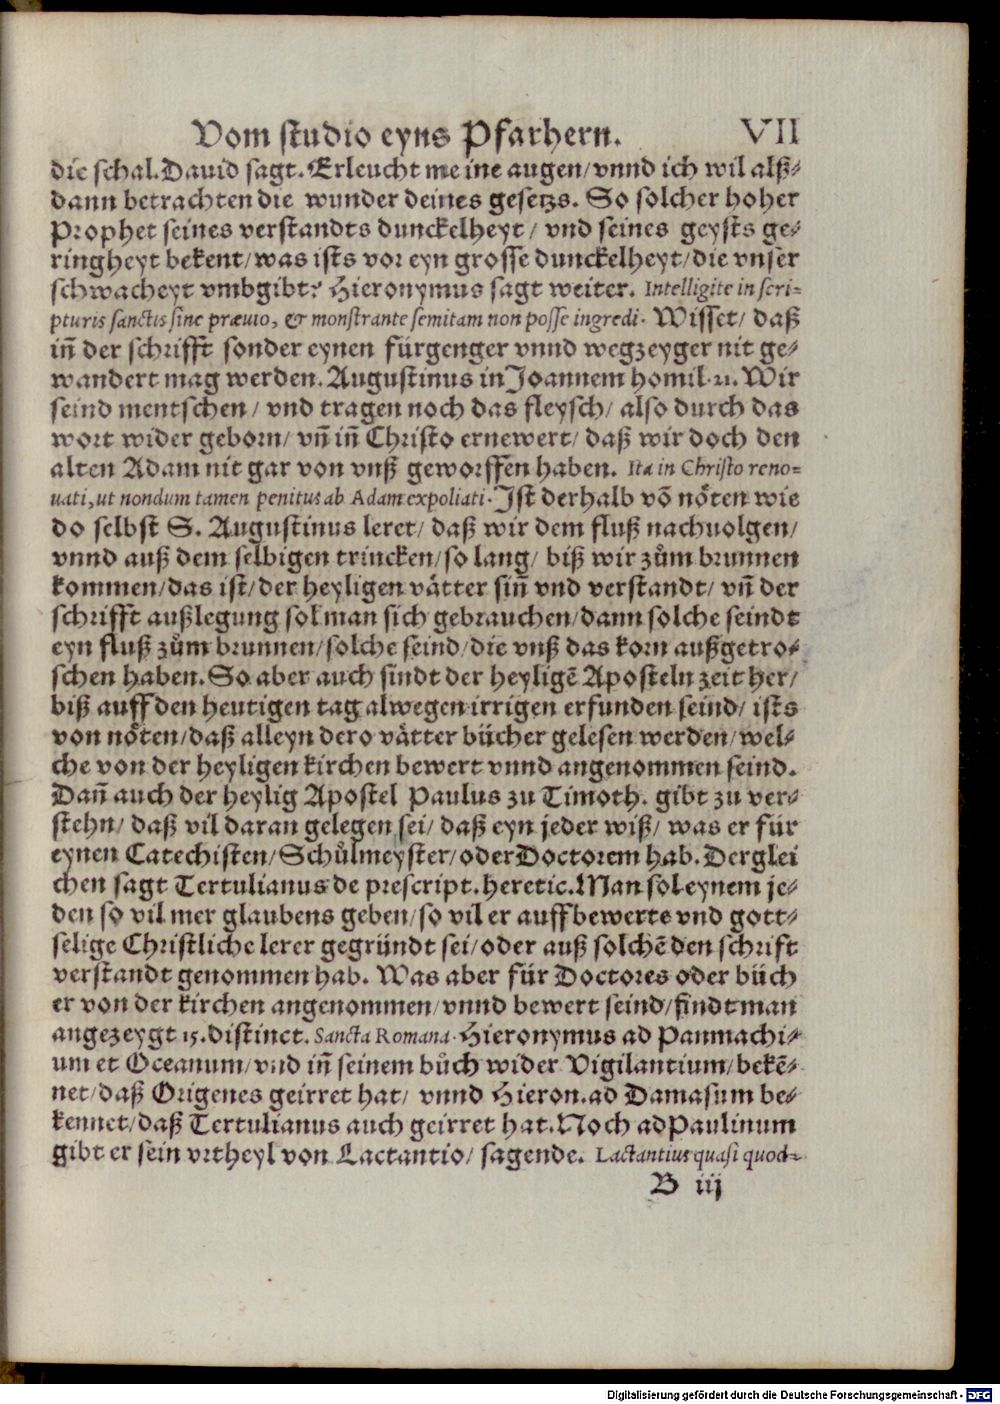 Vom studio eyns Pfarhern. VII
die schal. Dauid sagt. Erleucht meine augen/ vnnd ich wil alß⸗
dann betrachten die wunder deines gesetzs. So solcher hoher
Prophet seines verstandts dunckelheyt/ vnd seines geysts ge⸗
ringheyt bekent/ was ists vor eyn grosse dunckelheyt/ die vnser
schwacheyt vmbgibt? Hieronymus sagt weiter. Intelligite in scri⸗
pturis sanctis sine præuio, & monstrante semitam non posse ingredi. Wisset/ daß
in̄ der schrifft sonder eynen fürgenger vnnd wegzeyger nit ge⸗
wandert mag werden. Augustinus in Joannem homil. 21. Wir
seind mentschen/ vnd tragen noch das fleysch/ also durch das
wort wider geborn/ vn̄ in̄ Christo ernewert/ daß wir doch den
alten Adam nit gar von vnß geworffen haben. Ita in Christo reno⸗
uati, ut nondum tamen penitus ab Adam expoliati. Ist derhalb vō nöten wie
do selbst S. Augustinus leret/ daß wir dem fluß nachuolgen/
vnnd auß dem selbigen trincken/ so lang/ biß wir zům brunnen
kommen/ das ist/ der heyligen vätter sin̄ vnd verstandt/ vn̄ der
schrifft außlegung sol man sich gebrauchen/ dann solche seindt
eyn fluß zům brunnen/ solche seind/ die vnß das korn außgetro⸗
schen haben. So aber auch sindt der heyligē Aposteln zeit her/
biß auff den heutigen tag alwegen irrigen erfunden seind/ ists
von nöten/ daß alleyn dero vätter bücher gelesen werden/ wel⸗
che von der heyligen kirchen bewert vnnd angenommen seind.
Dan̄ auch der heylig Apostel Paulus zu Timoth. gibt zu ver⸗
stehn/ daß vil daran gelegen sei/ daß eyn jeder wiß/ was er für
eynen Catechisten/ Schůlmeyster/ oder Doctorem hab. Derglei
chen sagt Tertulianus de prescript. heretic. Man sol eynem je⸗
den so vil mer glaubens geben/ so vil er auff bewerte vnd gott⸗
selige Christliche lerer gegründt sei/ oder auß solchē den schrift
verstandt genommen hab. Was aber für Doctores oder büch
er von der kirchen angenommen/ vnnd bewert seind/ findt man
angezeygt 15. distinct. Sancta Romana. Hieronymus ad Panmachi⸗
um et Oceanum/ vnd in̄ seinem bůch wider Vigilantium/ bekē⸗
net/ daß Origenes geirret hat/ vnnd Hieron. ad Damasum be⸗
kennet/ daß Tertulianus auch geirret hat. Noch ad Paulinum
gibt er sein vrtheyl von Lactantio/ sagende. Lactantius quasi quod⸗
B iij
Digitalisierung gefördert durch die Deutsche Forschungsgemeinschaft - DFG